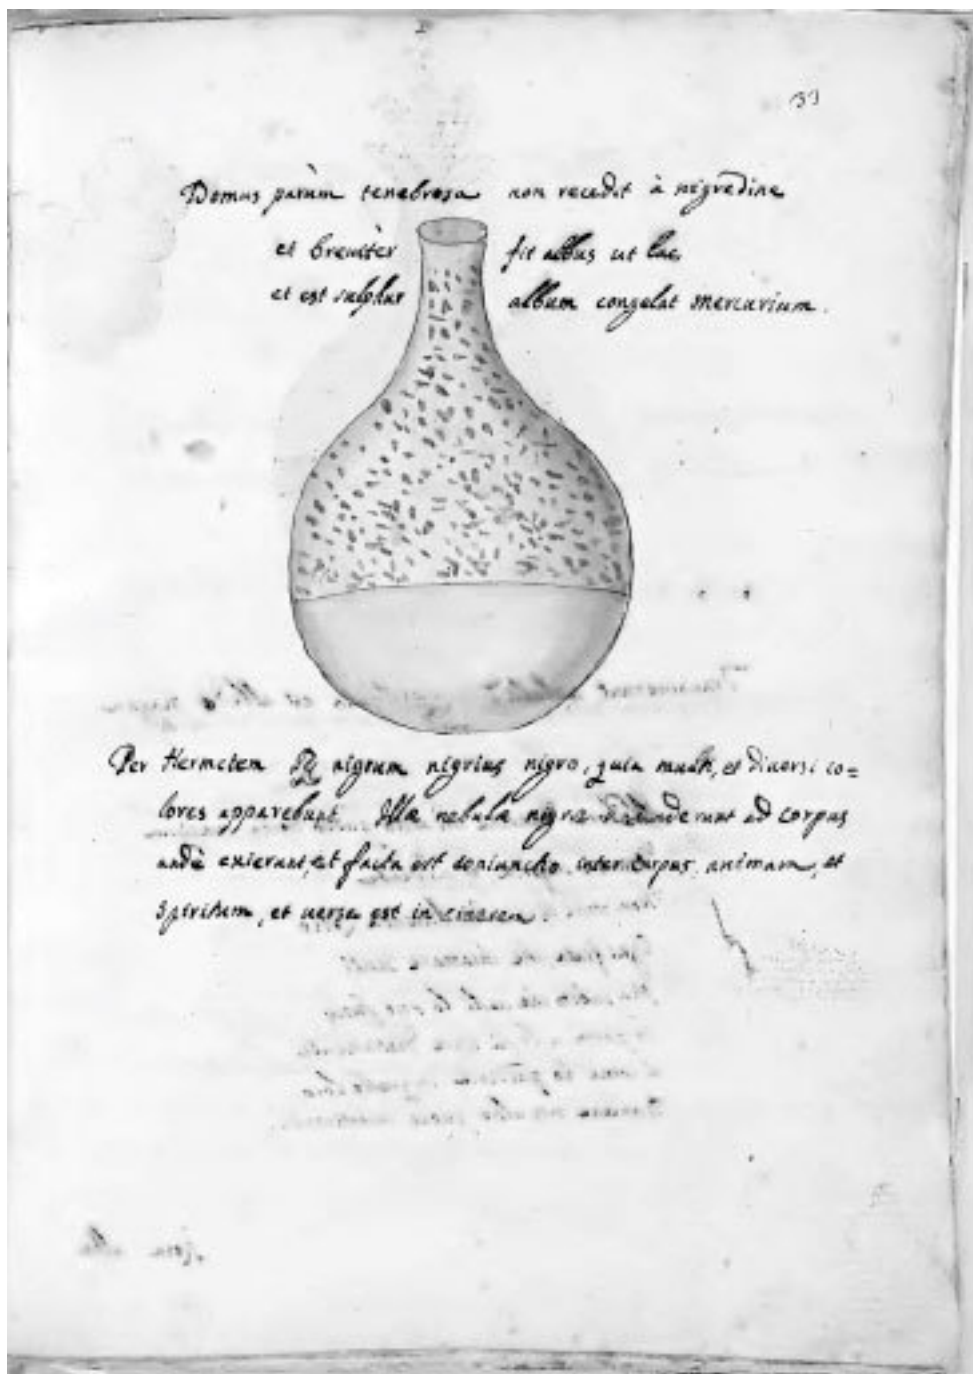 33
Domus parùm tenebrosa non recedit à nigredine
et breuitèr fit albus ut lac
et est sulphur album congelat mercurium.
Per Hermetem nigrum nigrius nigro, quia multi, et diuersi co=
lores apparebunt Illæ nebulæ nigræ ad corpus
undè exierant, et facta est coniunctio inter corpus, animam, et
Spiritum, et uersa est in cinerem.